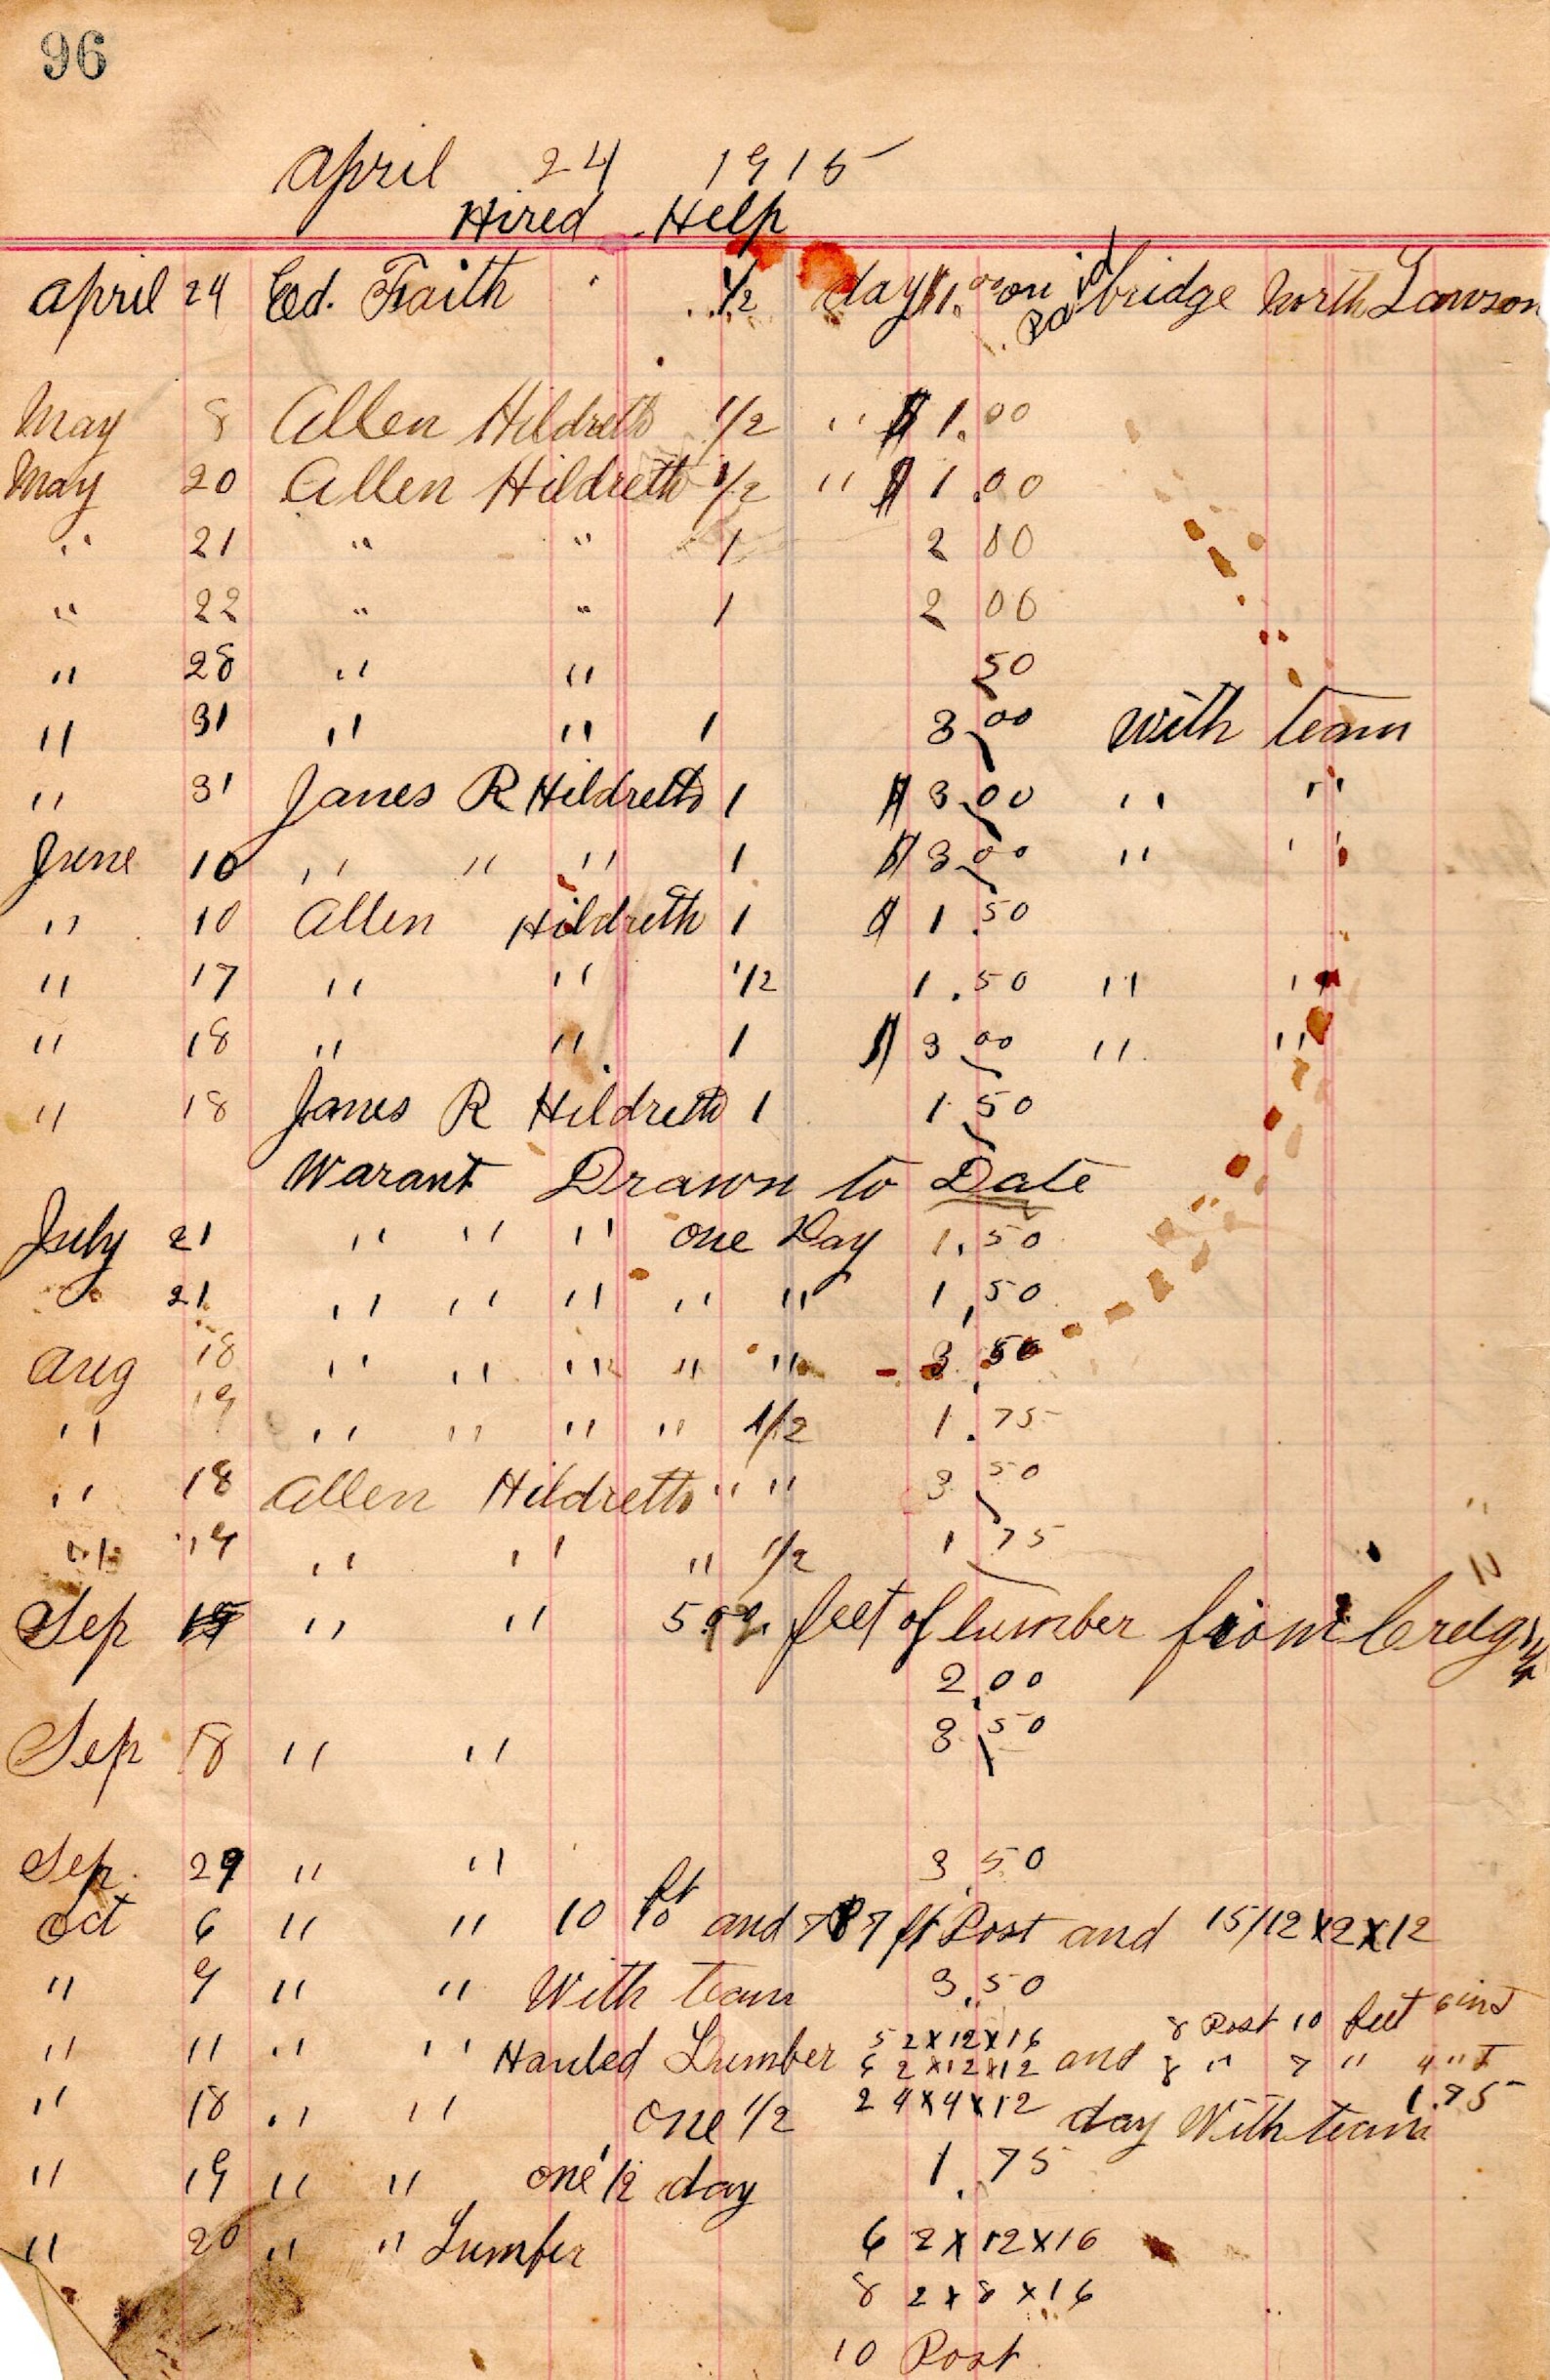 96
April 24 1915
Hired Help
April 24 Ed. Fraith 1/2 day $1.00 on Paid bridge North Lawson
May 8 Allen Hildreth 1/2 " $1.00
May 20 Allen Hildreth 1/2 " $1.00
" 21 " " 1 2 00
" 22 " " 1 2 00
" 28 " " 50
" 31 " " 1 3.00 With team
" 31 James R Hildreth 1 $3.00 " "
June 10 " " " 1 $3.00 " "
" 10 Allen Hildreth 1 $1.50
" 17 " " 1/2 1.50 " "
" 18 " " 1 $3.00 " "
" 18 James R Hildreth 1 1.50
Warant Drawn to Date
July 21 " " " one Day 1.50
21 " " " " " 1.50
Aug 18 " " " " " 3.50
" 19 " " " " 1/2 1.75
" 18 Allen Hildreth " " 3.50
" 19 " " " 1/2 1.75
Sep " " feet of lumber from
2.00
Sep 18 " " 3.50
Sep. 29 " " 3.50
Oct 6 " " 10 ft and 7 ft Post and 15/12x2x12
" 9 " " With team 3.50
" 11 " " Hauled Lumber 5 2x12x16 and 8 Post 10 feet 6 in
6 2x12x12 8 " 7 " 4 "
2 4x4x12
" 18 " " one 1/2 day With team 1.75
" 19 " " one 1/2 day 1.75
" 20 " " Lumber 6 2x12x16
8 2x8x16
10 Post